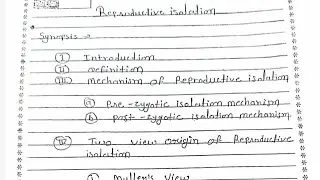 Reproductive isolation
Synopsis →
I Introduction
II Definition
III mechanism of Reproductive isolation
a Pre-zygotic isolation mechanism
b post-zygotic isolation mechanism
IV Two view origin of Reproductive
isolation
1. Muller's view